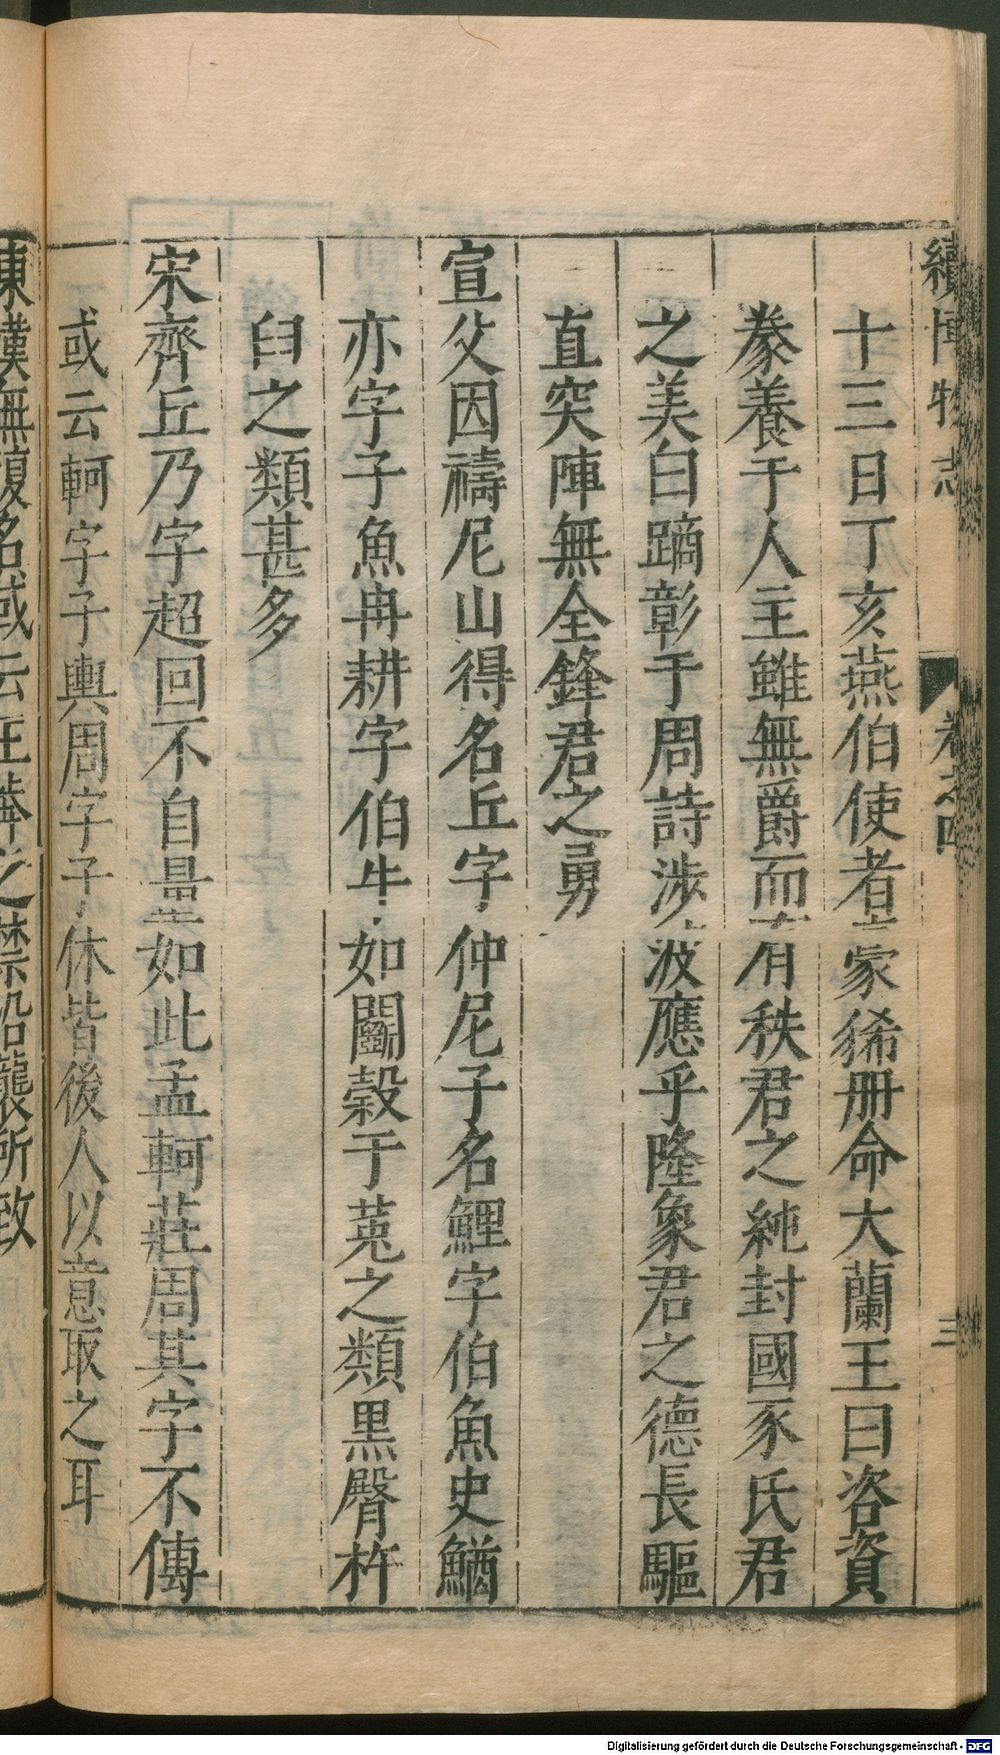 續博物志 卷之四 三
十三日丁亥燕伯使者豪豨冊命大蘭王曰咨資
豢養于人主雖無爵而有秩君之純封國豕氏君
之美白蹢彰于周詩涉波應乎隆象君之德長驅
直突陣無全鋒君之勇
宣父因禱尼山得名丘字仲尼子名鯉字伯魚史鰌
亦字子魚冉耕字伯牛如鬭榖于菟之類黑臀杵
臼之類甚多
宋齊丘乃字超回不自量如此孟軻莊周其字不傳
或云軻字子輿周字子休皆後人以意取之耳
東漢無復名或云王莽之禁沿襲所致
Digitalisierung gefördert durch die Deutsche Forschungsgemeinschaft - DFG